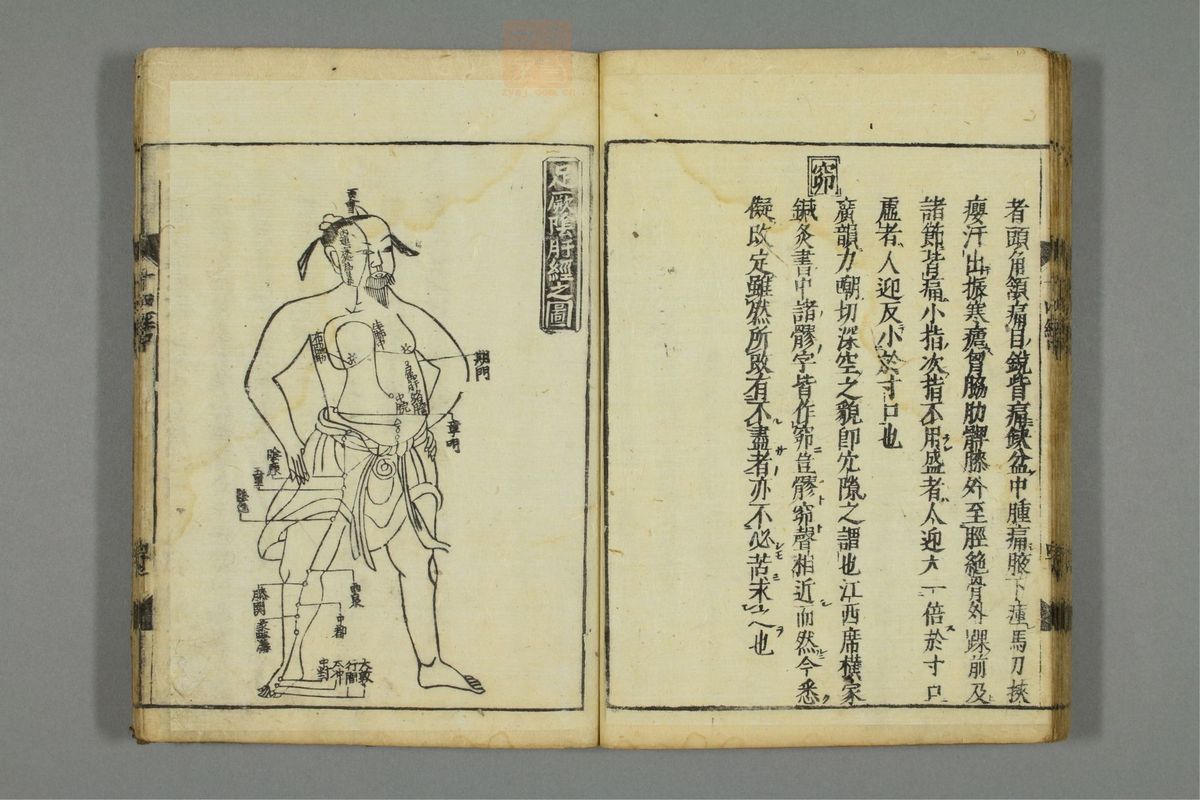 者頭角頷痛目銳眥痛缺盆中腫痛腋下痺馬刀挾
癭汗出振寒瘧胷脇肋髀膝外至脛絶骨外踝前及
諸節皆痛小指次指不用盛者人迎大一倍於寸口
虛者人迎反小於寸口也
窌
廣韻力嘲切深空之貌卽穴隙之謂也江西席橫家
鍼灸書中諸髎字皆作窌豈髎窌聲相近而然今悉
儗改定雖然所改有不盡者亦不必苦求之也
足厥陰肝經之圖
百會
期門
章門
中脘
陰廉
五里
陰包
膝関
曲泉
中都
中封
太冲
行間
大敦
zysj.com.cn